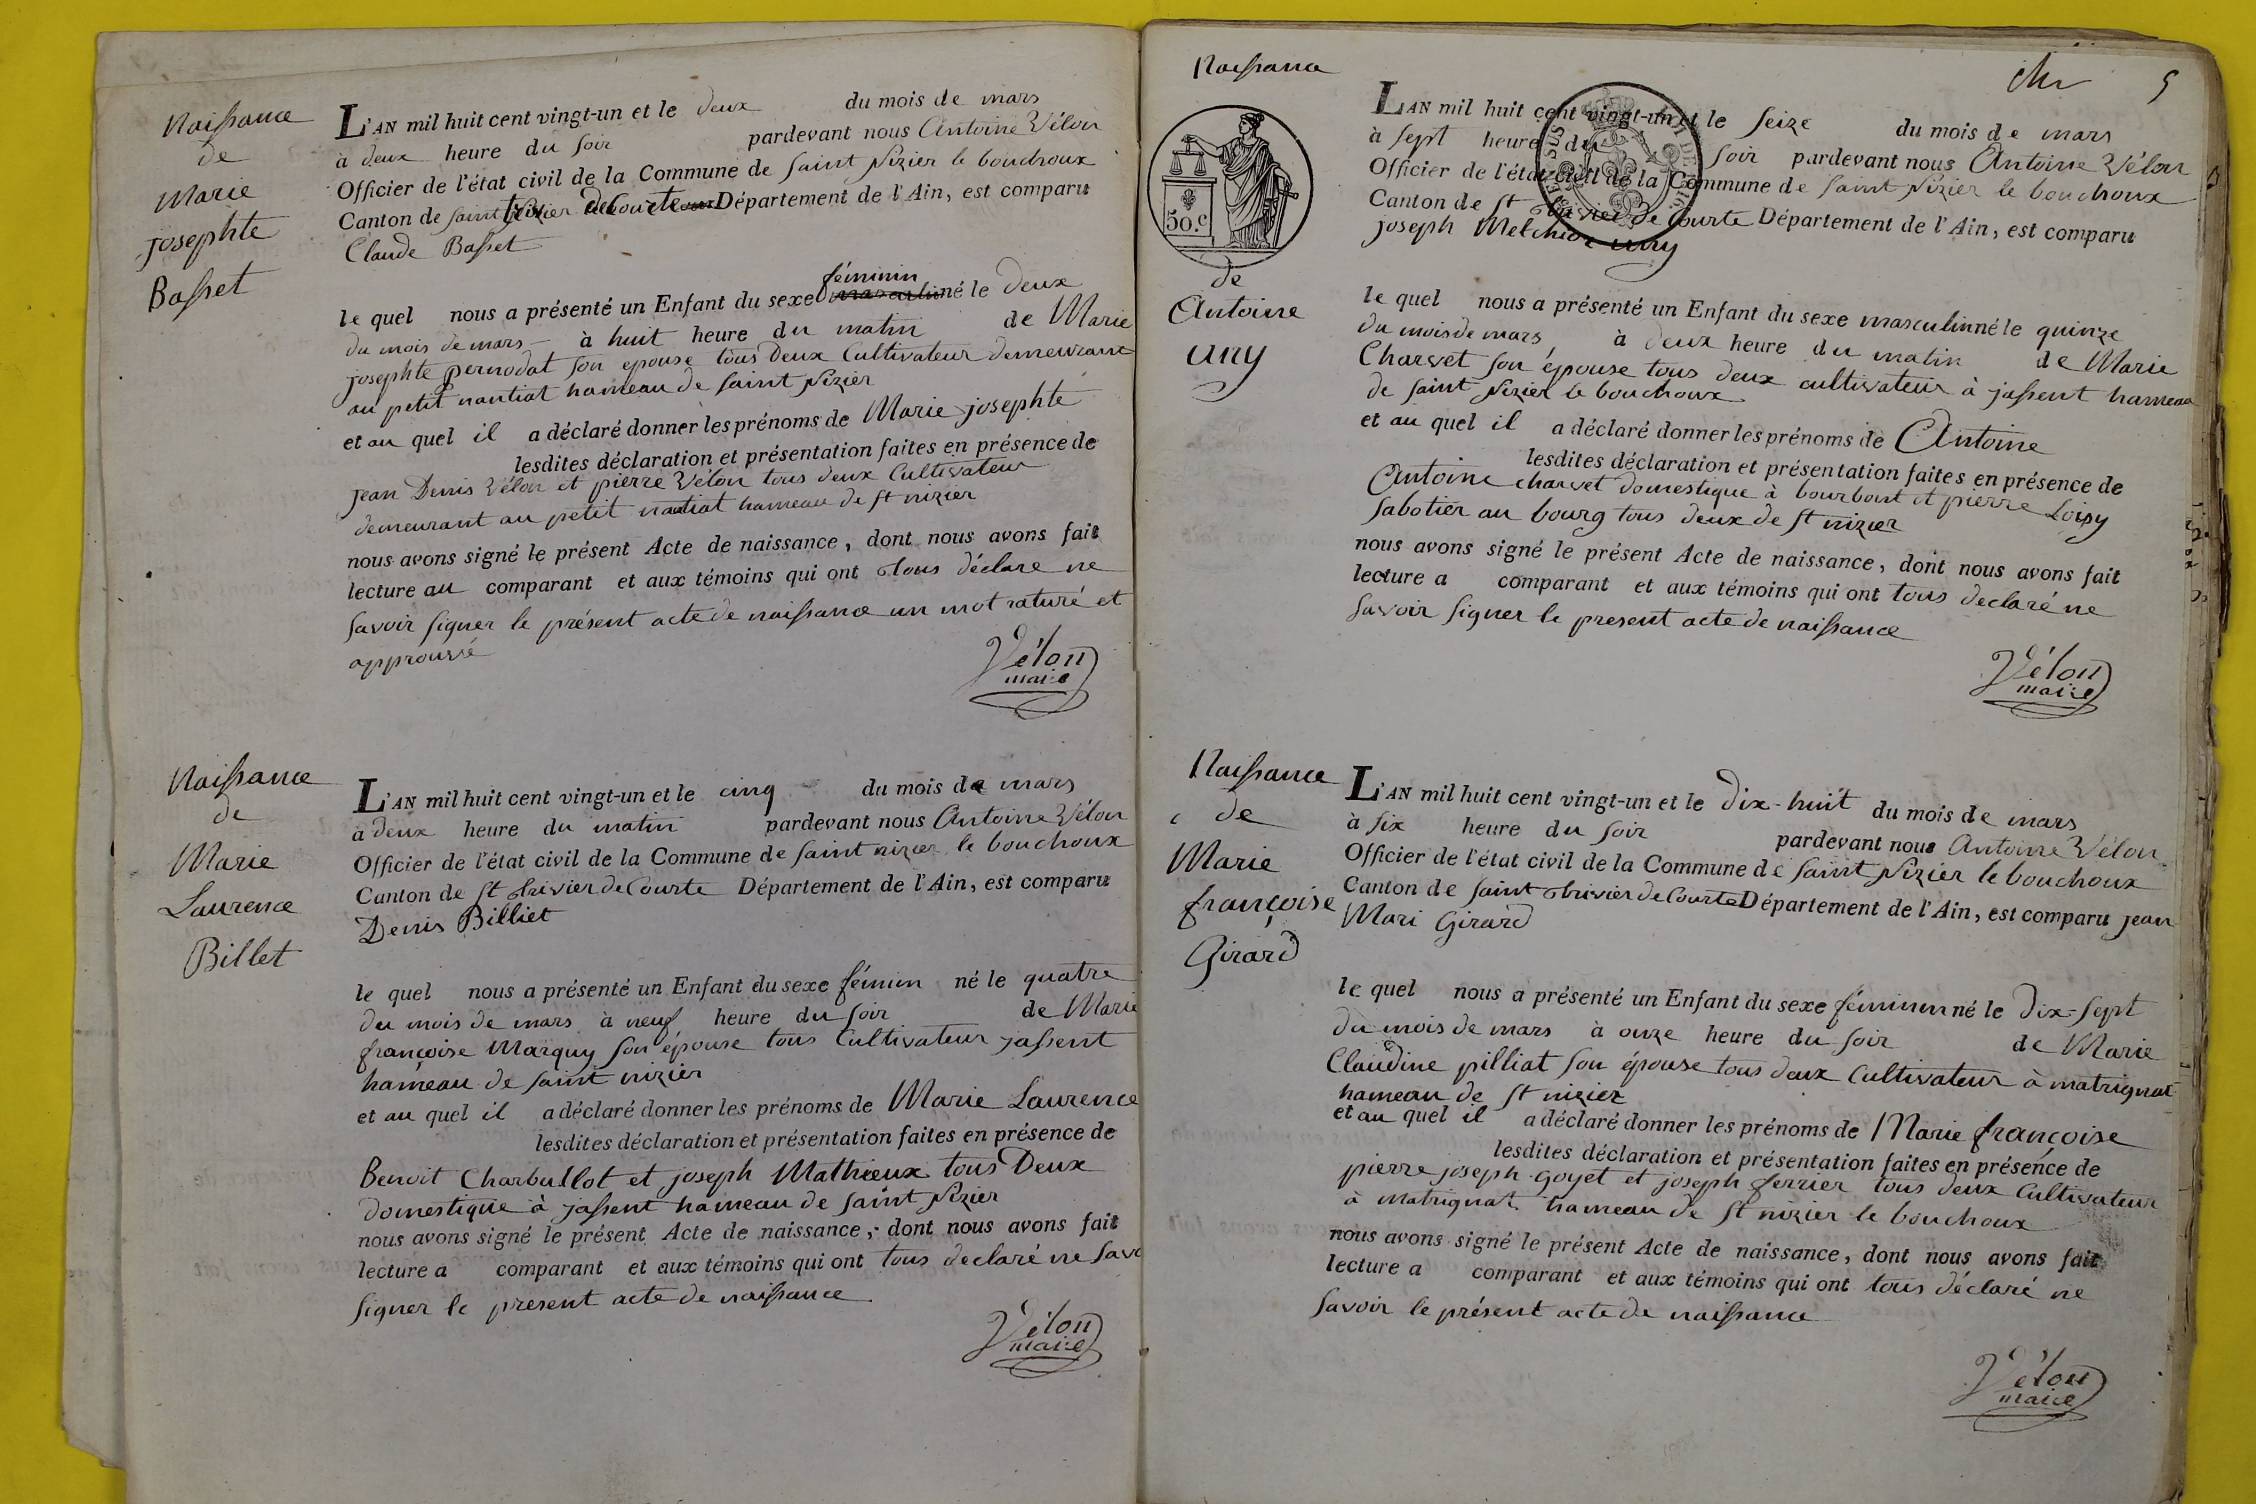 Naissance
de
Marie
josephte
Basset
L'AN mil huit cent vingt-un et le deux du mois de mars
à deux heure du soir pardevant nous Antoine Vélon
Officier de l'état civil de la Commune de saint Nizier le bouchoux
Canton de saint trivier de Courte Département de l'Ain, est comparu
Claude Basset
féminin
le quel nous a présenté un Enfant du sexe masculin né le deux
du mois de mars à huit heure du matin de Marie
josephte pernodat son epouse tous deux Cultivateur demeurant
au petit nantiat hameau de saint Nizier
et au quel il a déclaré donner les prénoms de Marie josephte
lesdites déclaration et présentation faites en présence de
jean Denis Vélon et pierre Vélon tous deux Cultivateur
demeurant au petit nantiat hameau de st nizier
nous avons signé le présent Acte de naissance, dont nous avons fait
lecture au comparant et aux témoins qui ont tous déclare ne
savoir signer le présent acte de naissance un mot raturé et
approuvé
Vélon
maire
Naissance
de
Marie
Laurence
Billet
L'AN mil huit cent vingt-un et le cinq du mois de mars
à deux heure du matin pardevant nous Antoine Vélon
Officier de l'état civil de la Commune de saint nizier le bouchoux
Canton de St trivier de Courte Département de l'Ain, est comparu
Denis Billiet
le quel nous a présenté un Enfant du sexe féminin né le quatre
du mois de mars à neuf heure du soir de Marie
françoise Marquy son épouse tous Cultivateur jassent
hameau de saint nizier
et au quel il a déclaré donner les prénoms de Marie Laurence
lesdites déclaration et présentation faites en présence de
Benoit Charbullot et joseph Mathieux tous Deux
domestique à jassent hameau de saint Nizier
nous avons signé le présent Acte de naissance, dont nous avons fait
lecture a comparant et aux témoins qui ont tous déclaré ne savo
signer le present acte de naissance
Vélon
maire
5
Naissance
50.c
de
Antoine
uny
L'AN mil huit cent vingt-un et le seize du mois de mars
à sept heure du soir pardevant nous Antoine Vélon
Officier de l'état civil de la Commune de saint Nizier le bouchoux
Canton de St trivier de Courte Département de l'Ain, est comparu
joseph Melchior uny
le quel nous a présenté un Enfant du sexe masculin né le quinze
du mois de mars à deux heure du matin de Marie
Charvet son épouse tous deux cultivateur à jassent hameau
de saint Nizier le bouchoux
et au quel il a déclaré donner les prénoms de Antoine
lesdites déclaration et présentation faites en présence de
Antoine charvet domestique à et pierre Loisy
sabotier au bourg tous deux de st nizier
nous avons signé le présent Acte de naissance, dont nous avons fait
lecture a comparant et aux témoins qui ont tous declaré ne
savoir signer le present acte de naissance
Vélon
maire
Naissance
de
Marie
françoise
Girard
L'AN mil huit cent vingt-un et le dix-huit du mois de mars
à six heure du soir pardevant nous Antoine Vélon
Officier de l'état civil de la Commune de saint Nizier le bouchoux
Canton de saint trivier de Courte Département de l'Ain, est comparu jean
Mari Girard
le quel nous a présenté un Enfant du sexe féminin né le dix-sept
du mois de mars à onze heure du soir de Marie
Claudine pilliat son épouse tous deux Cultivateur à matrignat
hameau de st nizier
et au quel il a déclaré donner les prénoms de Marie françoise
lesdites déclaration et présentation faites en présence de
pierre joseph goyet et joseph ferrier tous deux Cultivateur
à Matrignat hameau de st nizier le bouchoux
nous avons signé le présent Acte de naissance, dont nous avons fait
lecture a comparant et aux témoins qui ont tous déclaré ne
savoir le présent acte de naissance
Vélon
maire